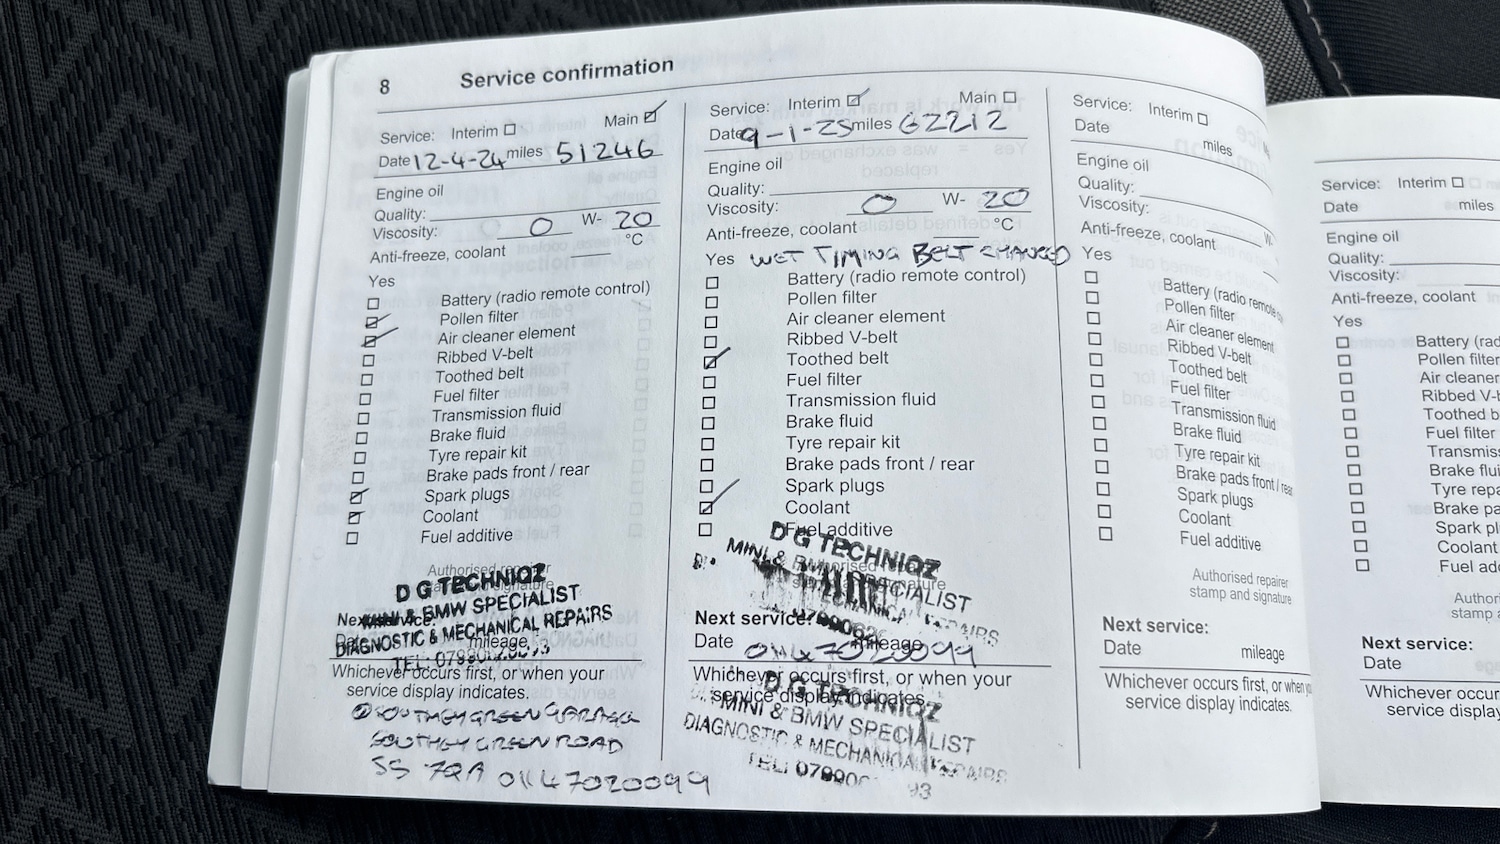 8 Service confirmation
Service: Interim Main
Date 12-4-24 miles 51246
Engine oil
Quality:
Viscosity: 0 W- 20
Anti-freeze, coolant °C
Yes
Battery (radio remote control)
Pollen filter
Air cleaner element
Ribbed V-belt
Toothed belt
Fuel filter
Transmission fluid
Brake fluid
Tyre repair kit
Brake pads front / rear
Spark plugs
Coolant
Fuel additive
Authorised repairer
D G TECHNIQZ
MINI & BMW SPECIALIST
Next service:
DIAGNOSTIC & MECHANICAL REPAIRS
mileage
Whichever occurs first, or when your
service display indicates.
SOUTHEY GREEN GARAGE
SOUTHEY GREEN ROAD
S5 7QA 01147020099
Service: Interim Main
Date 9-1-25 miles 62212
Engine oil
Quality:
Viscosity: 0 W- 20
Anti-freeze, coolant °C
Yes WET TIMING BELT CHANGED
Battery (radio remote control)
Pollen filter
Air cleaner element
Ribbed V-belt
Toothed belt
Fuel filter
Transmission fluid
Brake fluid
Tyre repair kit
Brake pads front / rear
Spark plugs
Coolant
Fuel additive
D G TECHNIQZ
MINI & SPECIALIST
Next service:
Date 01147020099 mileage
Whichever occurs first, or when your
service display indicates.
D G TECHNIQZ
MINI & BMW SPECIALIST
DIAGNOSTIC & MECHANICAL REPAIRS
TEL: 93
Service: Interim
Date miles
Engine oil
Quality:
Viscosity: W-
Anti-freeze, coolant
Yes
Battery (radio remote
Pollen filter
Air cleaner element
Ribbed V-belt
Toothed belt
Fuel filter
Transmission fluid
Brake fluid
Tyre repair kit
Brake pads front / rear
Spark plugs
Coolant
Fuel additive
Authorised repairer
stamp and signature
Next service:
Date mileage
Whichever occurs first, or when you
service display indicates.
Service: Interim
Date miles
Engine oil
Quality:
Viscosity:
Anti-freeze, coolant
Yes
Battery (rad
Pollen filter
Air cleaner
Ribbed V-b
Toothed b
Fuel filter
Transmiss
Brake flui
Tyre repa
Brake pa
Spark pl
Coolant
Fuel add
Author
stamp a
Next service:
Date
Whichever occur
service display